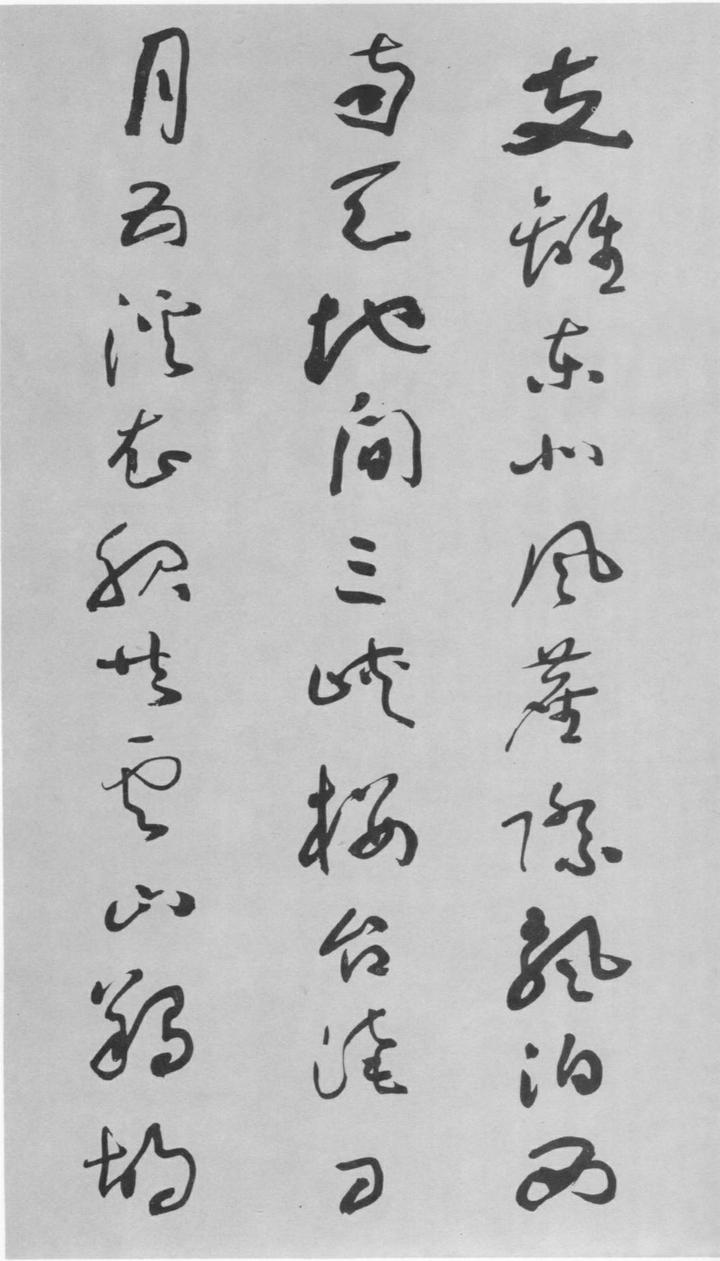 支離東北風塵際飄泊西
南天地間三峽樓台淹日
月五溪衣服共雲山羯胡